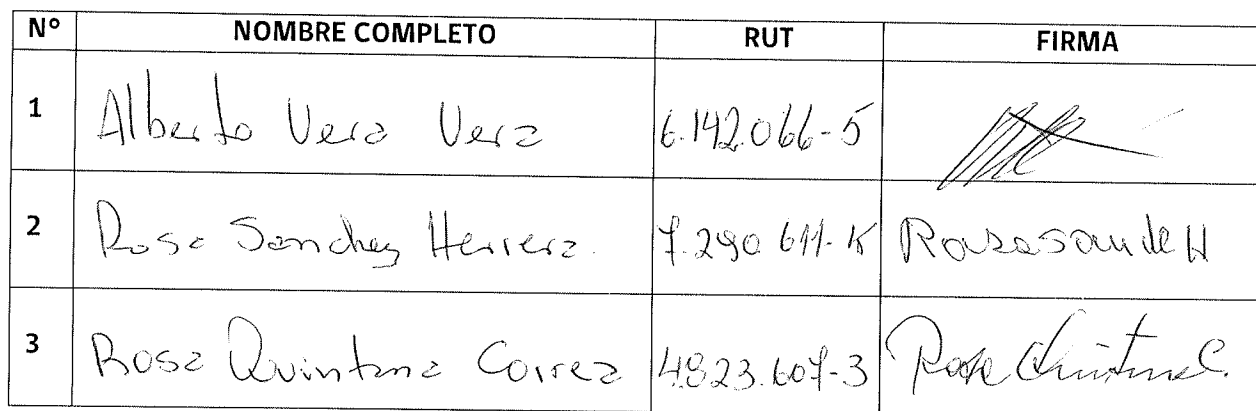 N° NOMBRE COMPLETO RUT FIRMA
1 Alberto Vera Vera 6.142.066-5
2 Rosa Sanchez Herrera. 7.290.611-K Rosasande H
3 Rosa Quintana Correa 4.923.607-3 Rosa Quintana C.